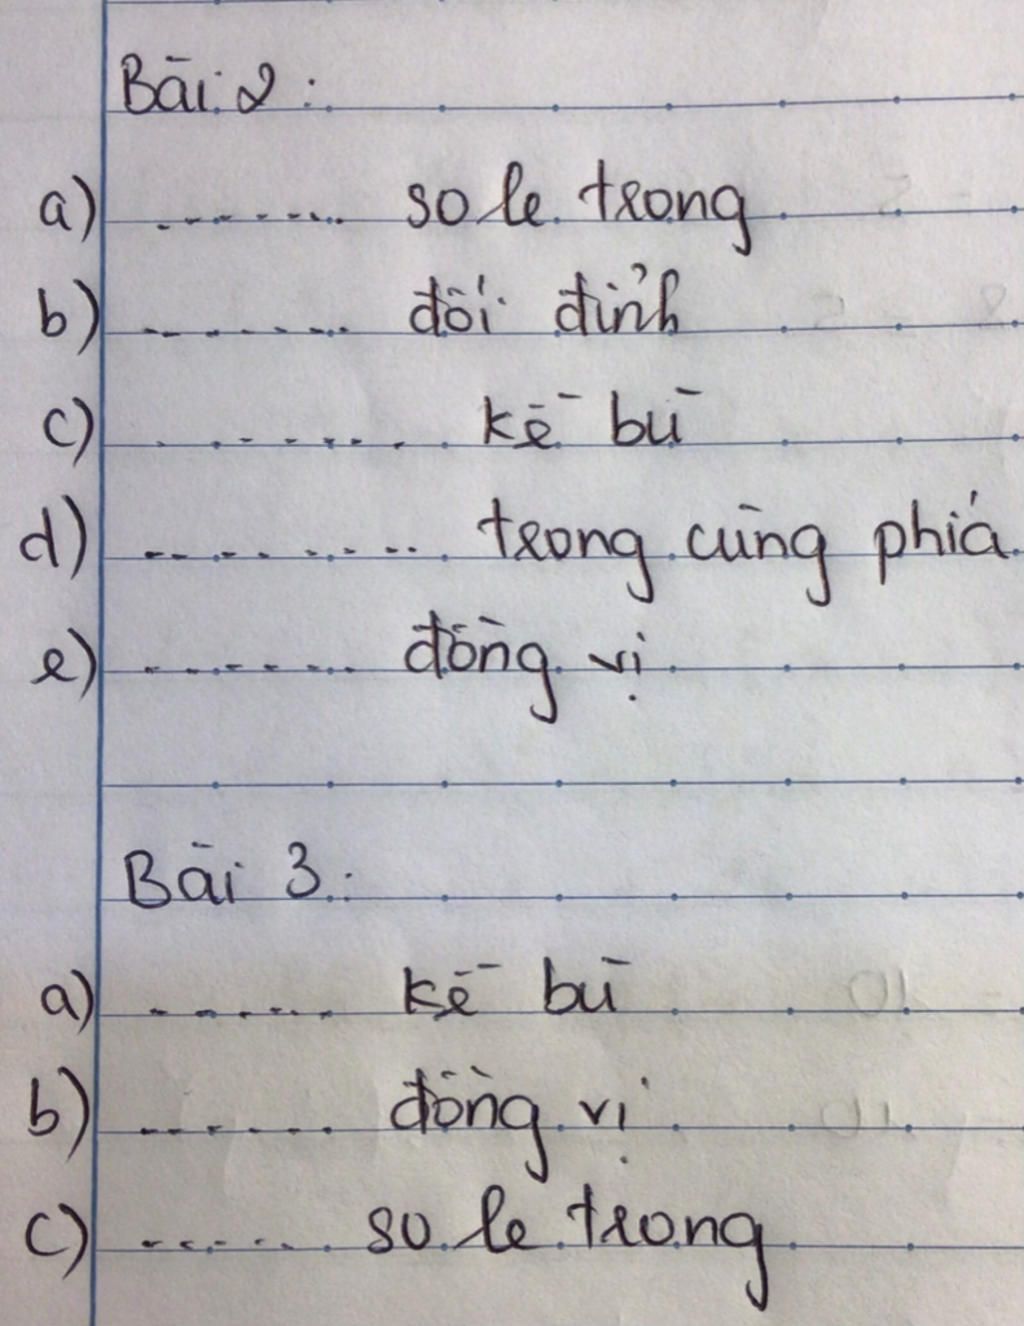 Bài 2 :
a) ........ so le trong
b) ........ đối đỉnh
c) ........ kề bù
d) ........ trong cùng phía
e) ........ đồng vị
Bài 3 :
a) ...... kề bù
b) ...... đồng vị
c) ...... so le trong